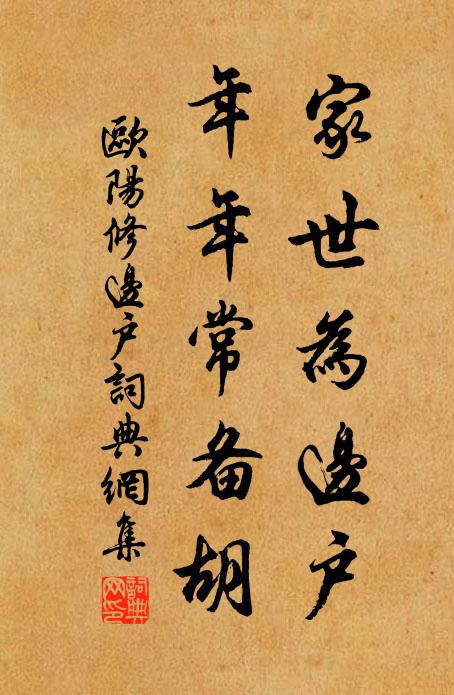 家世為邊戶
年年常备胡
歐陽修邊戶詞典網集
詞典網印